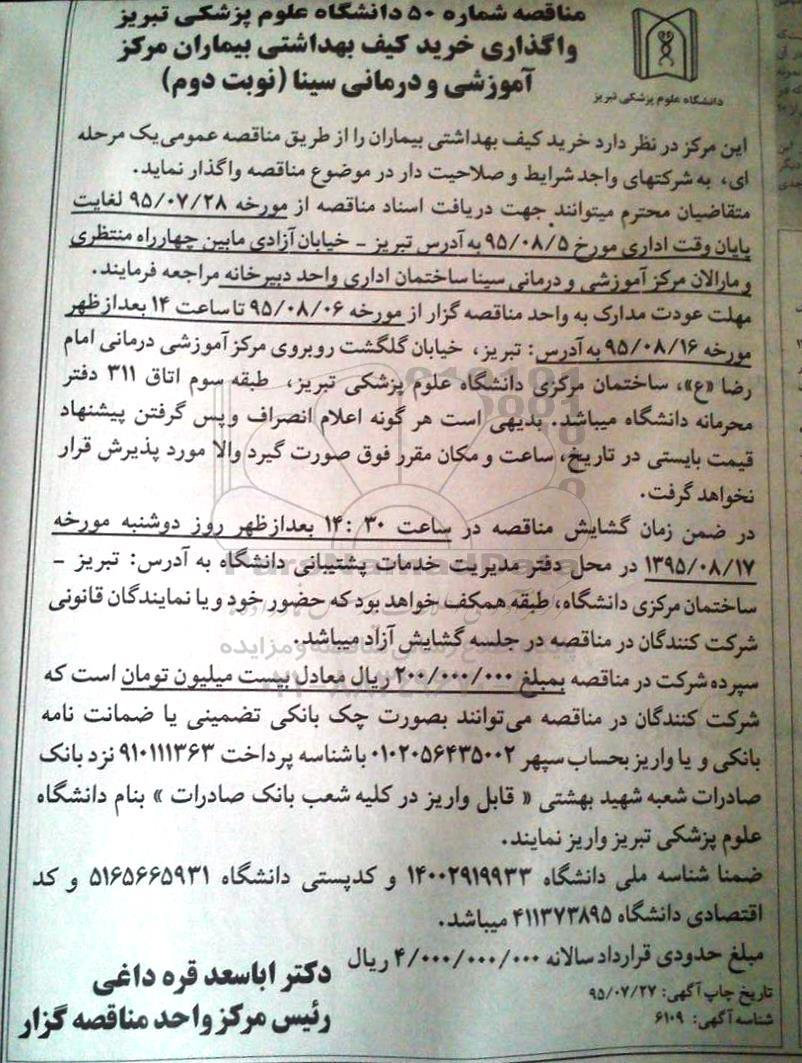 مناقصه شماره ۵۰ دانشگاه علوم پزشکی تبریز
واگذاری خرید کیف بهداشتی بیماران مرکز
آموزشی و درمانی سینا (نوبت دوم)
دانشگاه علوم پزشکی تبریز
این مرکز در نظر دارد خرید کیف بهداشتی بیماران را از طریق مناقصه عمومی یک مرحله
ای، به شرکتهای واجد شرایط و صلاحیت دار در موضوع مناقصه واگذار نماید.
متقاضیان محترم میتوانند جهت دریافت اسناد مناقصه از مورخه ۹۵/۰۷/۲۸ لغایت
پایان وقت اداری مورخ ۹۵/۰۸/۵ به آدرس تبریز - خیابان آزادی مابین چهارراه منتظری
و مارالان مرکز آموزشی و درمانی سینا ساختمان اداری واحد دبیرخانه مراجعه فرمایند.
مهلت عودت مدارک به واحد مناقصه گزار از مورخه ۹۵/۰۸/۰۶ تا ساعت ۱۴ بعدازظهر
مورخه ۹۵/۰۸/۱۶ به آدرس: تبریز، خیابان گلگشت روبروی مرکز آموزشی درمانی امام
رضا «ع»، ساختمان مرکزی دانشگاه علوم پزشکی تبریز، طبقه سوم اتاق ۳۱۱ دفتر
محرمانه دانشگاه میباشد. بدیهی است هر گونه اعلام انصراف وپس گرفتن پیشنهاد
قیمت بایستی در تاریخ، ساعت و مکان مقرر فوق صورت گیرد والا مورد پذیرش قرار
نخواهد گرفت.
در ضمن زمان گشایش مناقصه در ساعت ۳۰ :۱۴ بعدازظهر روز دوشنبه مورخه
۱۳۹۵/۰۸/۱۷ در محل دفتر مدیریت خدمات پشتیبانی دانشگاه به آدرس: تبریز -
ساختمان مرکزی دانشگاه، طبقه همکف خواهد بود که حضور خود و یا نمایندگان قانونی
شرکت کنندگان در مناقصه در جلسه گشایش آزاد میباشد.
سپرده شرکت در مناقصه بمبلغ ۲۰۰/۰۰۰/۰۰۰ ریال معادل بیست میلیون تومان است که
شرکت کنندگان در مناقصه می‌توانند بصورت چک بانکی تضمینی یا ضمانت نامه
بانکی و یا واریز بحساب سپهر ۰۱۰۲۰۵۶۴۳۵۰۰۲ با شناسه پرداخت ۹۱۰۱۱۱۳۶۳ نزد بانک
صادرات شعبه شهید بهشتی « قابل واریز در کلیه شعب بانک صادرات » بنام دانشگاه
علوم پزشکی تبریز واریز نمایند.
ضمنا شناسه ملی دانشگاه ۱۴۰۰۲۹۱۹۹۳۳ و کدپستی دانشگاه ۵۱۶۵۶۶۵۹۳۱ و کد
اقتصادی دانشگاه ۴۱۱۳۷۳۸۹۵ میباشد.
مبلغ حدودی قرارداد سالانه ۴/۰۰۰/۰۰۰/۰۰۰ ریال
تاریخ چاپ آگهی: ۹۵/۰۷/۲۷
شناسه آگهی: ۶۱۰۹
دکتر اباسعد قره داغی
رئیس مرکز واحد مناقصه گزار